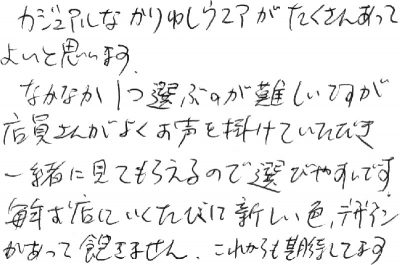 カジュアルなかりゆしウエアがたくさんあって
よいと思います
なかなか1つ選ぶのが難しいですが
店員さんがよくお声を掛けていただき
一緒に見てもらえるので選びやすいです
毎年お店にいくたびに新しい色、デザイン
があって飽きません、これからも期待してます